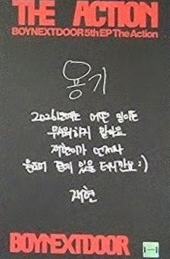 THE ACTION
BOYNEXTDOOR 5th EP The Action
용기
2026년에는 어떤 일이든
무서워하지 말아요
재현이가 언제나
옆에 있을 테니깐요 :)
재현
BOYNEXTDOOR